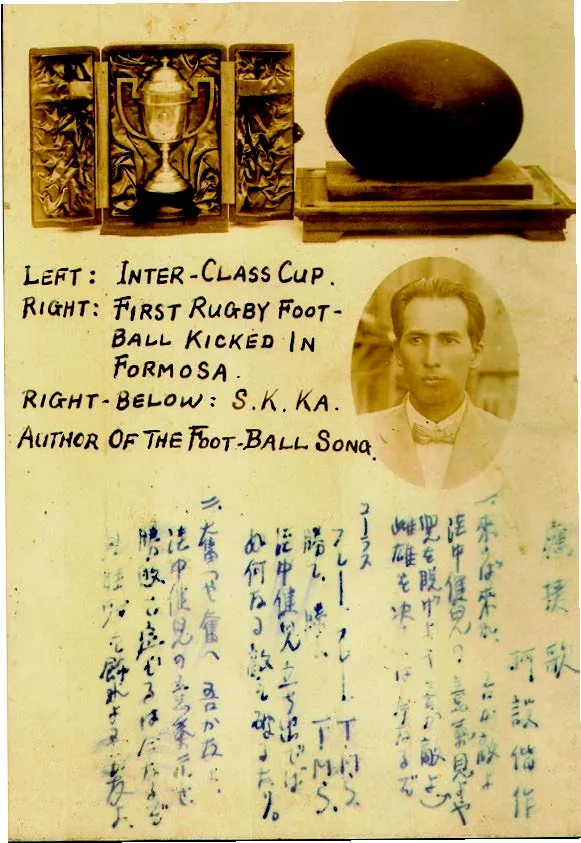 LEFT: INTER-CLASS CUP.
RIGHT: FIRST RUGBY FOOT-
BALL KICKED IN
FORMOSA.
RIGHT-BELOW: S.K. KA.
AUTHOR OF THE FOOT-BALL SONG.
應援歌
柯設偕作
一、来らば来れ 吾が敵よ
淡中健児の意気見よや
兜を脱げよ 敵よ
雌雄を決するは なるぞ
コーラス
フレー フレー T.M.S.
勝て 勝て T.M.S.
淡中健児立ち出でば
如何なる敵も破るなり。
二、奮へや奮へ 吾が友よ
淡中健児の意気示せ
勝敗 なるぞ
を飾れよ 友よ